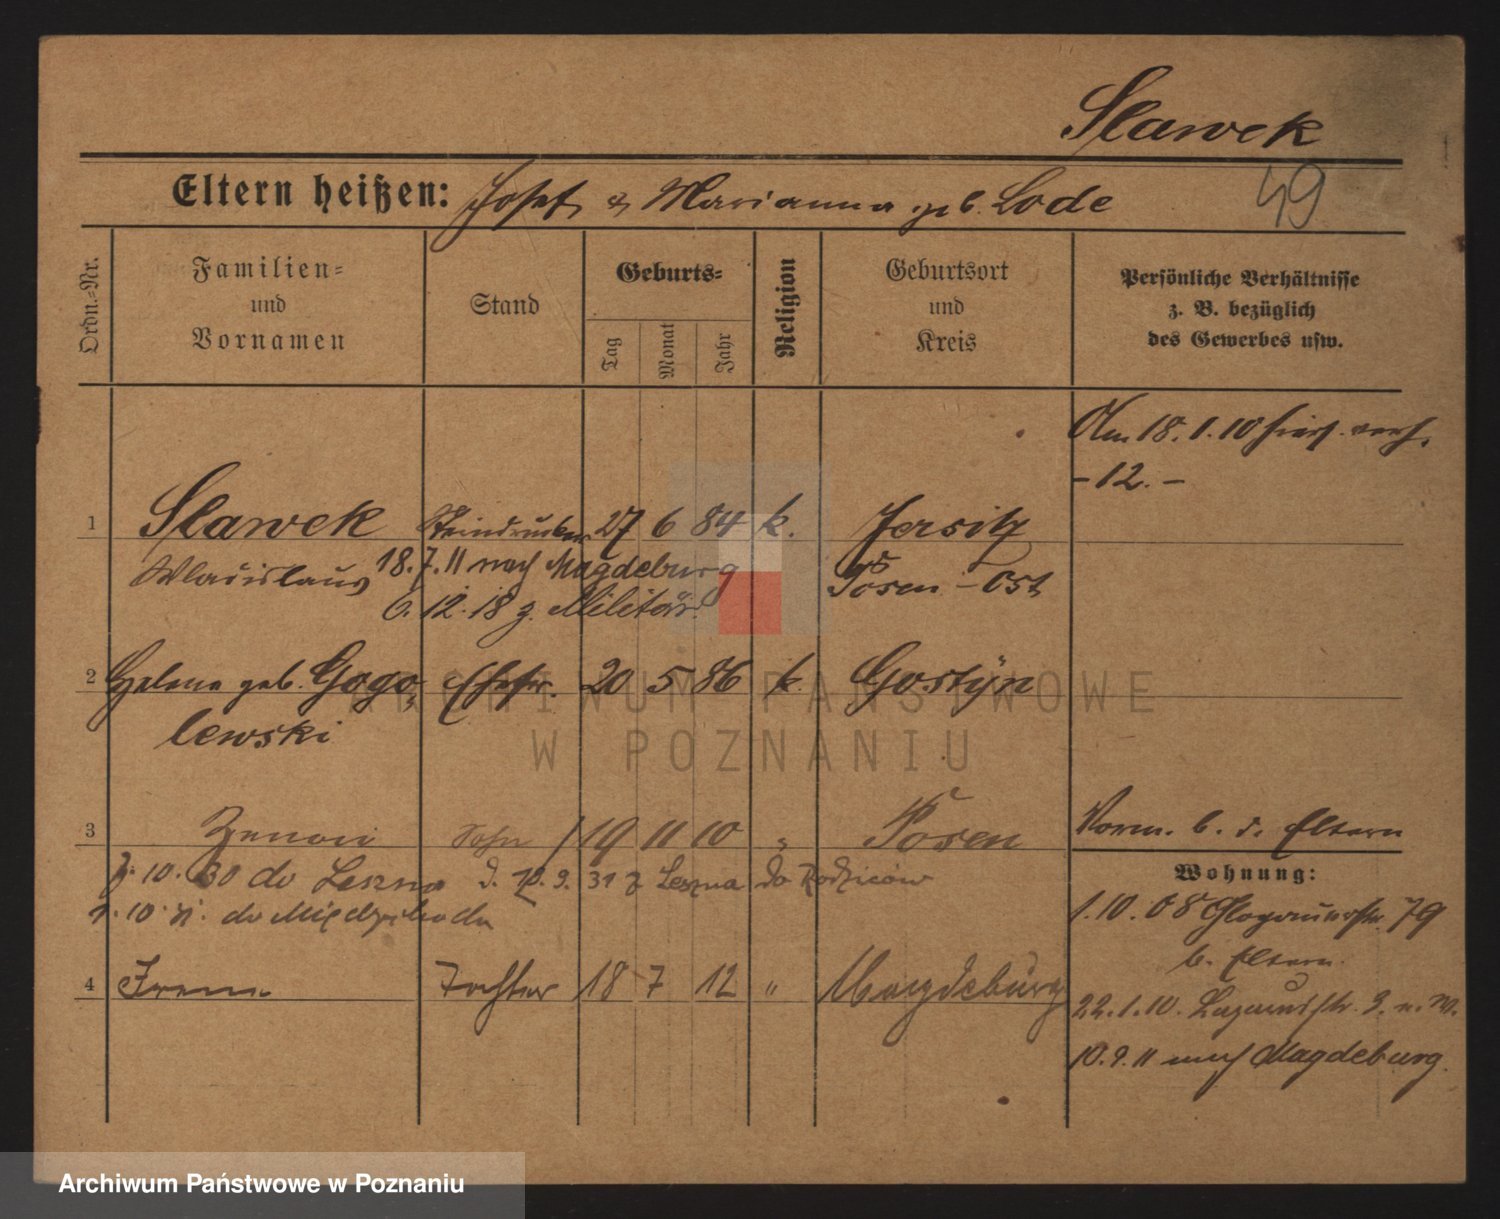 Slawek
49
Eltern heißen: Josef & Marianna geb. Lode
Ordn.-Nr.
Familien- und Vornamen
Stand
Geburts-
Tag
Monat
Jahr
Religion
Geburtsort und Kreis
Persönliche Verhältnisse
z. B. bezüglich
des Gewerbes usw.
Am 18.1.10 hier verh.
-12.-
1 Slawek Steindrucker 27 6 84 k. Jersitz
Wladislaus 18.7.11 nach Magdeburg Posen-Ost
6.12.18 z. Militär
2 Helene geb. Gogo Ehefr. 20 5 86 k. Gostyn
lewski
ARCHIWUM PAŃSTWOWE
W POZNANIU
3 Zenon Sohn 19 11 10 " Posen
10. 30 do Leszna d. 10.9.31 z Leszna do Rodziców
10. do Międzychodu
4 Irena Tochter 18 7 12 " Magdeburg
Vorm. b. d. Eltern
Wohnung:
1.10.08 Glogauerstr. 79
b. Eltern
22.1.10. Lazarusstr. 3. n. W.
10.9.11 nach Magdeburg.
Archiwum Państwowe w Poznaniu